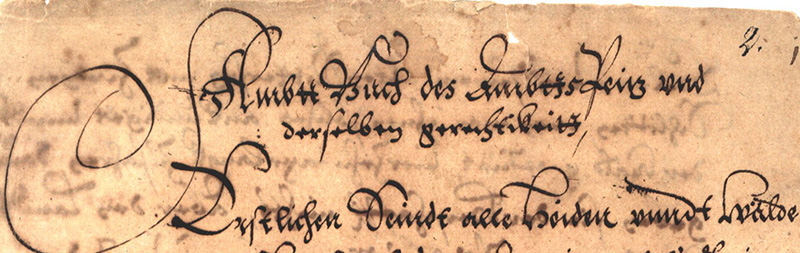 2.
Ambtt Buch des Ambtts Peitz vnd
derselben gerechtikeitt,
Erstlichen Seindt alle Heiden vnndt Wälde